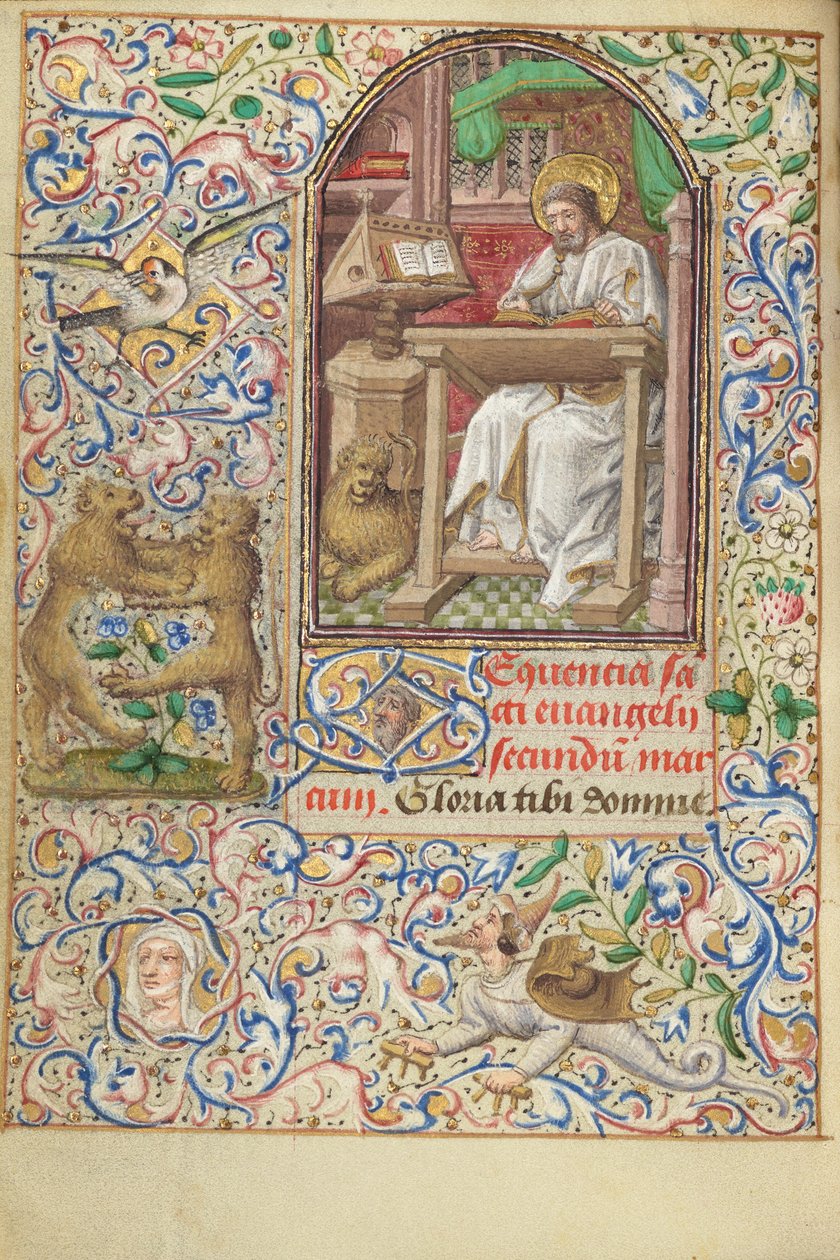 Sequencia sā
cti euangelij
secundū mar
cum. Gloria tibi domine